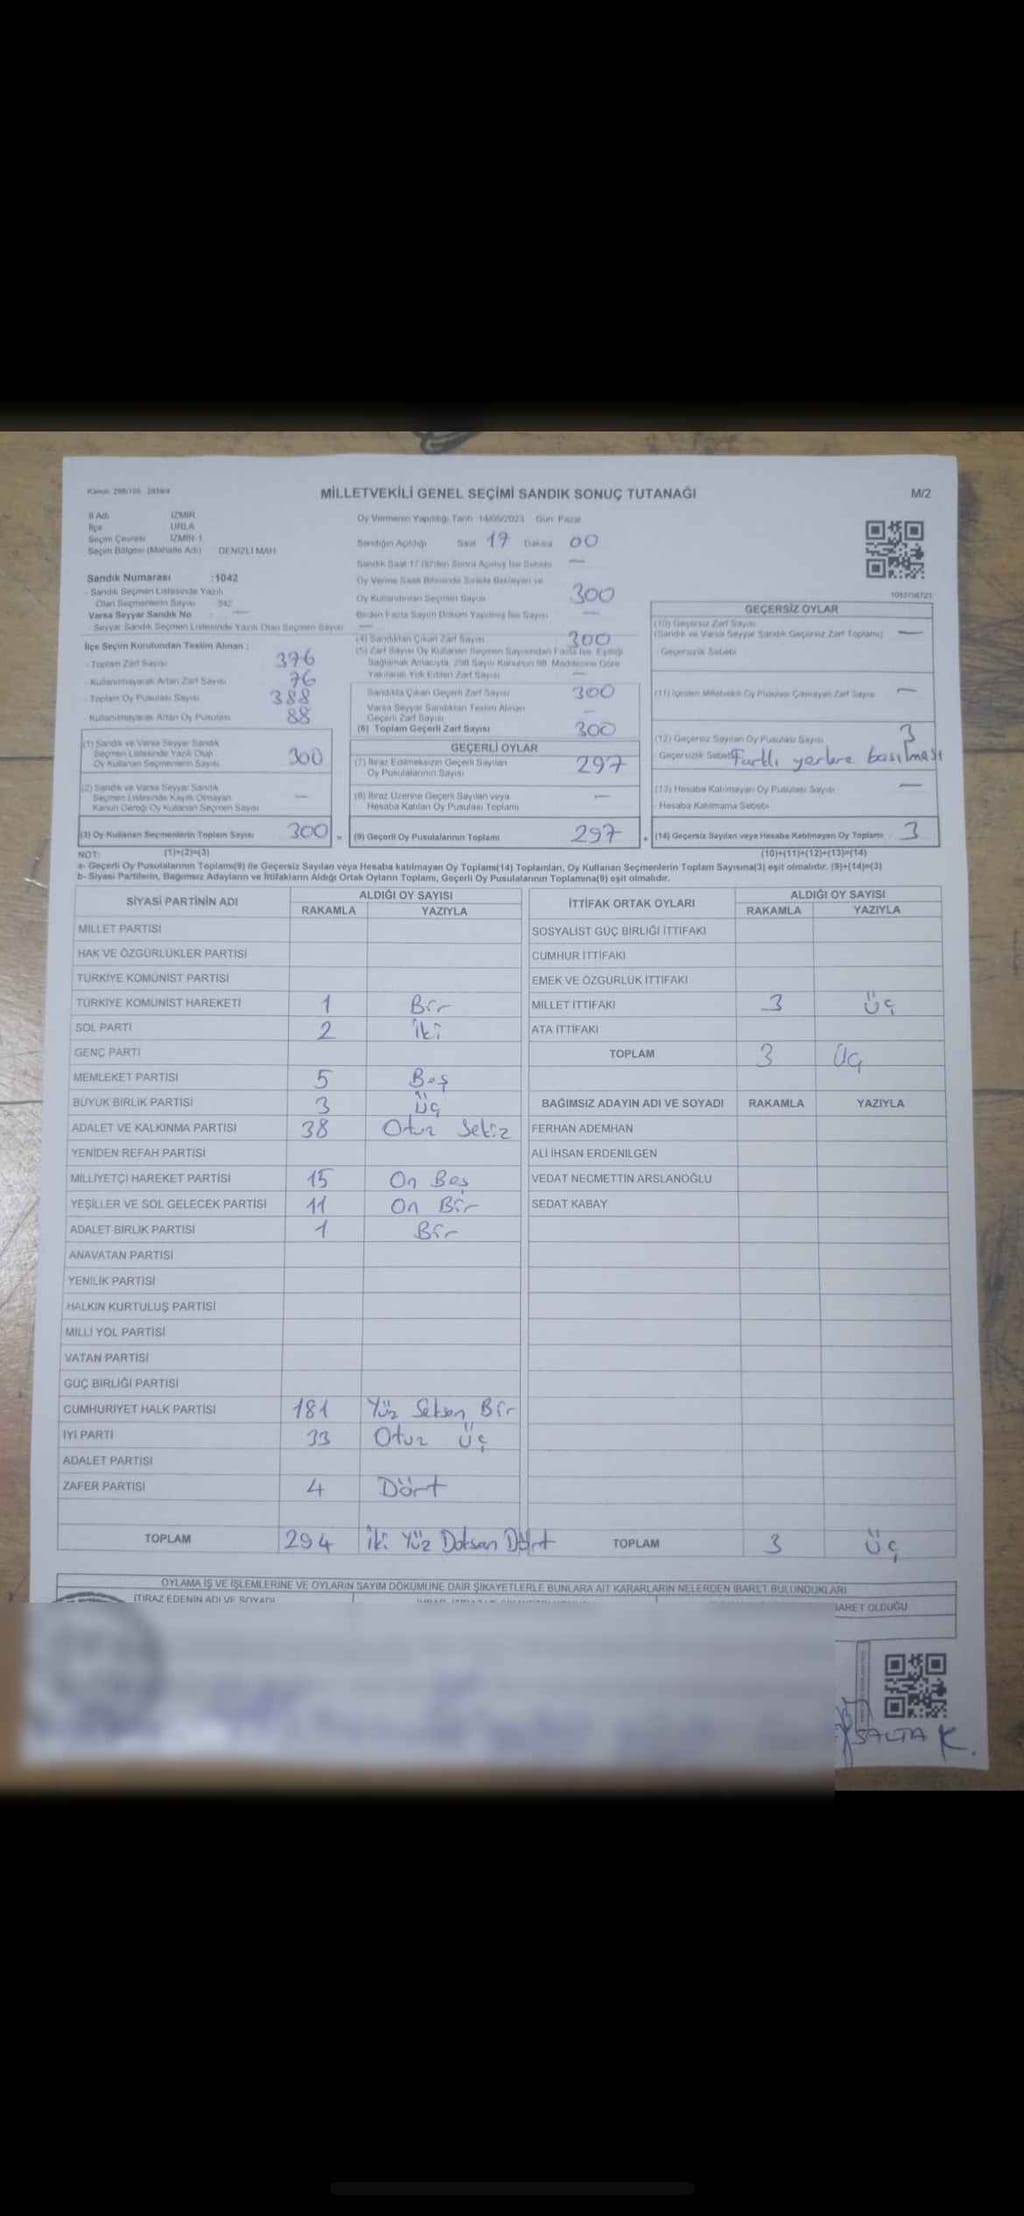 MİLLETVEKİLİ GENEL SEÇİMİ SANDIK SONUÇ TUTANAĞI
M/2
İl Adı İZMİR
İlçe URLA
Seçim Çevresi İZMİR-1
Seçim Bölgesi (Mahalle Adı) DENİZLİ MAH.
Oy Vermenin Yapıldığı Tarih 14/05/2023 Gün Pazar
Sandığın Açıldığı Saat 17 Dakika 00
Sandık Numarası :1042
- Sandık Seçmen Listesinde Yazılı
Olan Seçmenlerin Sayısı 342
Varsa Seyyar Sandık No —
- Seyyar Sandık Seçmen Listesinde Yazılı Olan Seçmen Sayısı —
Oy Kullandırılan Seçmen Sayısı 300
İlçe Seçim Kurulundan Teslim Alınan :
- Toplam Zarf Sayısı 376
- Kullanılmayarak Artan Zarf Sayısı 76
- Toplam Oy Pusulası Sayısı 388
- Kullanılmayarak Artan Oy Pusulası 88
(1) Sandık ve Varsa Seyyar Sandık
Seçmen Listesinde Yazılı Olup
Oy Kullanan Seçmenlerin Sayısı 300
(2) Sandık ve Varsa Seyyar Sandık
Seçmen Listesinde Kayıtlı Olmayan
Kanun Gereği Oy Kullanan Seçmen Sayısı —
(3) Oy Kullanan Seçmenlerin Toplam Sayısı 300 =
(1)+(2)=(3)
(4) Sandıktan Çıkan Zarf Sayısı 300
(5) Zarf Sayısı Oy Kullanan Seçmen Sayısından Fazla İse, Eşitliği
Sağlamak Amacıyla, 298 Sayılı Kanunun 98. Maddesine Göre
Yakılarak Yok Edilen Zarf Sayısı —
Sandıkta Çıkan Geçerli Zarf Sayısı 300
Varsa Seyyar Sandıktan Teslim Alınan
Geçerli Zarf Sayısı —
(6) Toplam Geçerli Zarf Sayısı 300
GEÇERLİ OYLAR
(7) İtiraz Edilmeksizin Geçerli Sayılan
Oy Pusulalarının Sayısı 297
(8) İtiraz Üzerine Geçerli Sayılan veya
Hesaba Katılan Oy Pusulası Toplamı —
(9) Geçerli Oy Pusulalarının Toplamı 297 +
GEÇERSİZ OYLAR
(10) Geçersiz Zarf Sayısı
(Sandık ve Varsa Seyyar Sandık Geçersiz Zarf Toplamı) —
Geçersizlik Sebebi
(11) İçinden Milletvekili Oy Pusulası Çıkmayan Zarf Sayısı —
(12) Geçersiz Sayılan Oy Pusulası Sayısı 3
Geçersizlik Sebebi Farklı yerlere basılması
(13) Hesaba Katılmayan Oy Pusulası Sayısı —
Hesaba Katılmama Sebebi
(14) Geçersiz Sayılan veya Hesaba Katılmayan Oy Toplamı 3
(10)+(11)+(12)+(13)=(14)
NOT:
a- Geçerli Oy Pusulalarının Toplamı(9) ile Geçersiz Sayılan veya Hesaba katılmayan Oy Toplamı(14) Toplamları, Oy Kullanan Seçmenlerin Toplam Sayısına(3) eşit olmalıdır. (9)+(14)=(3)
b- Siyasi Partilerin, Bağımsız Adayların ve İttifakların Aldığı Ortak Oyların Toplamı, Geçerli Oy Pusulalarının Toplamına(9) eşit olmalıdır.
SİYASİ PARTİNİN ADI ALDIĞI OY SAYISI
RAKAMLA YAZIYLA
MİLLET PARTİSİ
HAK VE ÖZGÜRLÜKLER PARTİSİ
TÜRKİYE KOMÜNİST PARTİSİ
TÜRKİYE KOMÜNİST HAREKETİ 1 Bir
SOL PARTİ 2 İki
GENÇ PARTİ
MEMLEKET PARTİSİ 5 Beş
BÜYÜK BİRLİK PARTİSİ 3 Üç
ADALET VE KALKINMA PARTİSİ 38 Otuz Sekiz
YENİDEN REFAH PARTİSİ
MİLLİYETÇİ HAREKET PARTİSİ 15 On Beş
YEŞİLLER VE SOL GELECEK PARTİSİ 11 On Bir
ADALET BİRLİK PARTİSİ 1 Bir
ANAVATAN PARTİSİ
YENİLİK PARTİSİ
HALKIN KURTULUŞ PARTİSİ
MİLLİ YOL PARTİSİ
VATAN PARTİSİ
GÜÇ BİRLİĞİ PARTİSİ
CUMHURİYET HALK PARTİSİ 181 Yüz Seksen Bir
İYİ PARTİ 33 Otuz Üç
ADALET PARTİSİ
ZAFER PARTİSİ 4 Dört
TOPLAM 294 İki Yüz Doksan Dört
İTTİFAK ORTAK OYLARI ALDIĞI OY SAYISI
RAKAMLA YAZIYLA
SOSYALİST GÜÇ BİRLİĞİ İTTİFAKI
CUMHUR İTTİFAKI
EMEK VE ÖZGÜRLÜK İTTİFAKI
MİLLET İTTİFAKI 3 Üç
ATA İTTİFAKI
TOPLAM 3 Üç
BAĞIMSIZ ADAYIN ADI VE SOYADI RAKAMLA YAZIYLA
FERHAN ADEMHAN
ALİ İHSAN ERDENİLGEN
VEDAT NECMETTİN ARSLANOĞLU
SEDAT KABAY
TOPLAM 3 Üç
OYLAMA İŞ VE İŞLEMLERİNE VE OYLARIN SAYIM DÖKÜMÜNE DAİR ŞİKAYETLERLE BUNLARA AİT KARARLARIN NELERDEN İBARET BULUNDUKLARI
İTİRAZ EDENİN ADI VE SOYADI
OLDUĞU